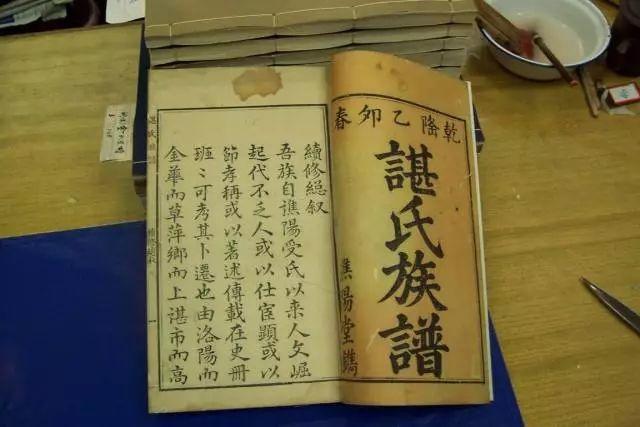 乾隆乙卯春
諶氏族譜
譙陽堂鐫
續修總叙
吾族自譙陽受氏以来人文崛
起代不乏人或以仕宦顯或以
節孝稱或以著述傳載在史冊
班〻可考其卜遷也由洛陽而
金華而草萍鄉而上諶市而高
諶氏族譜